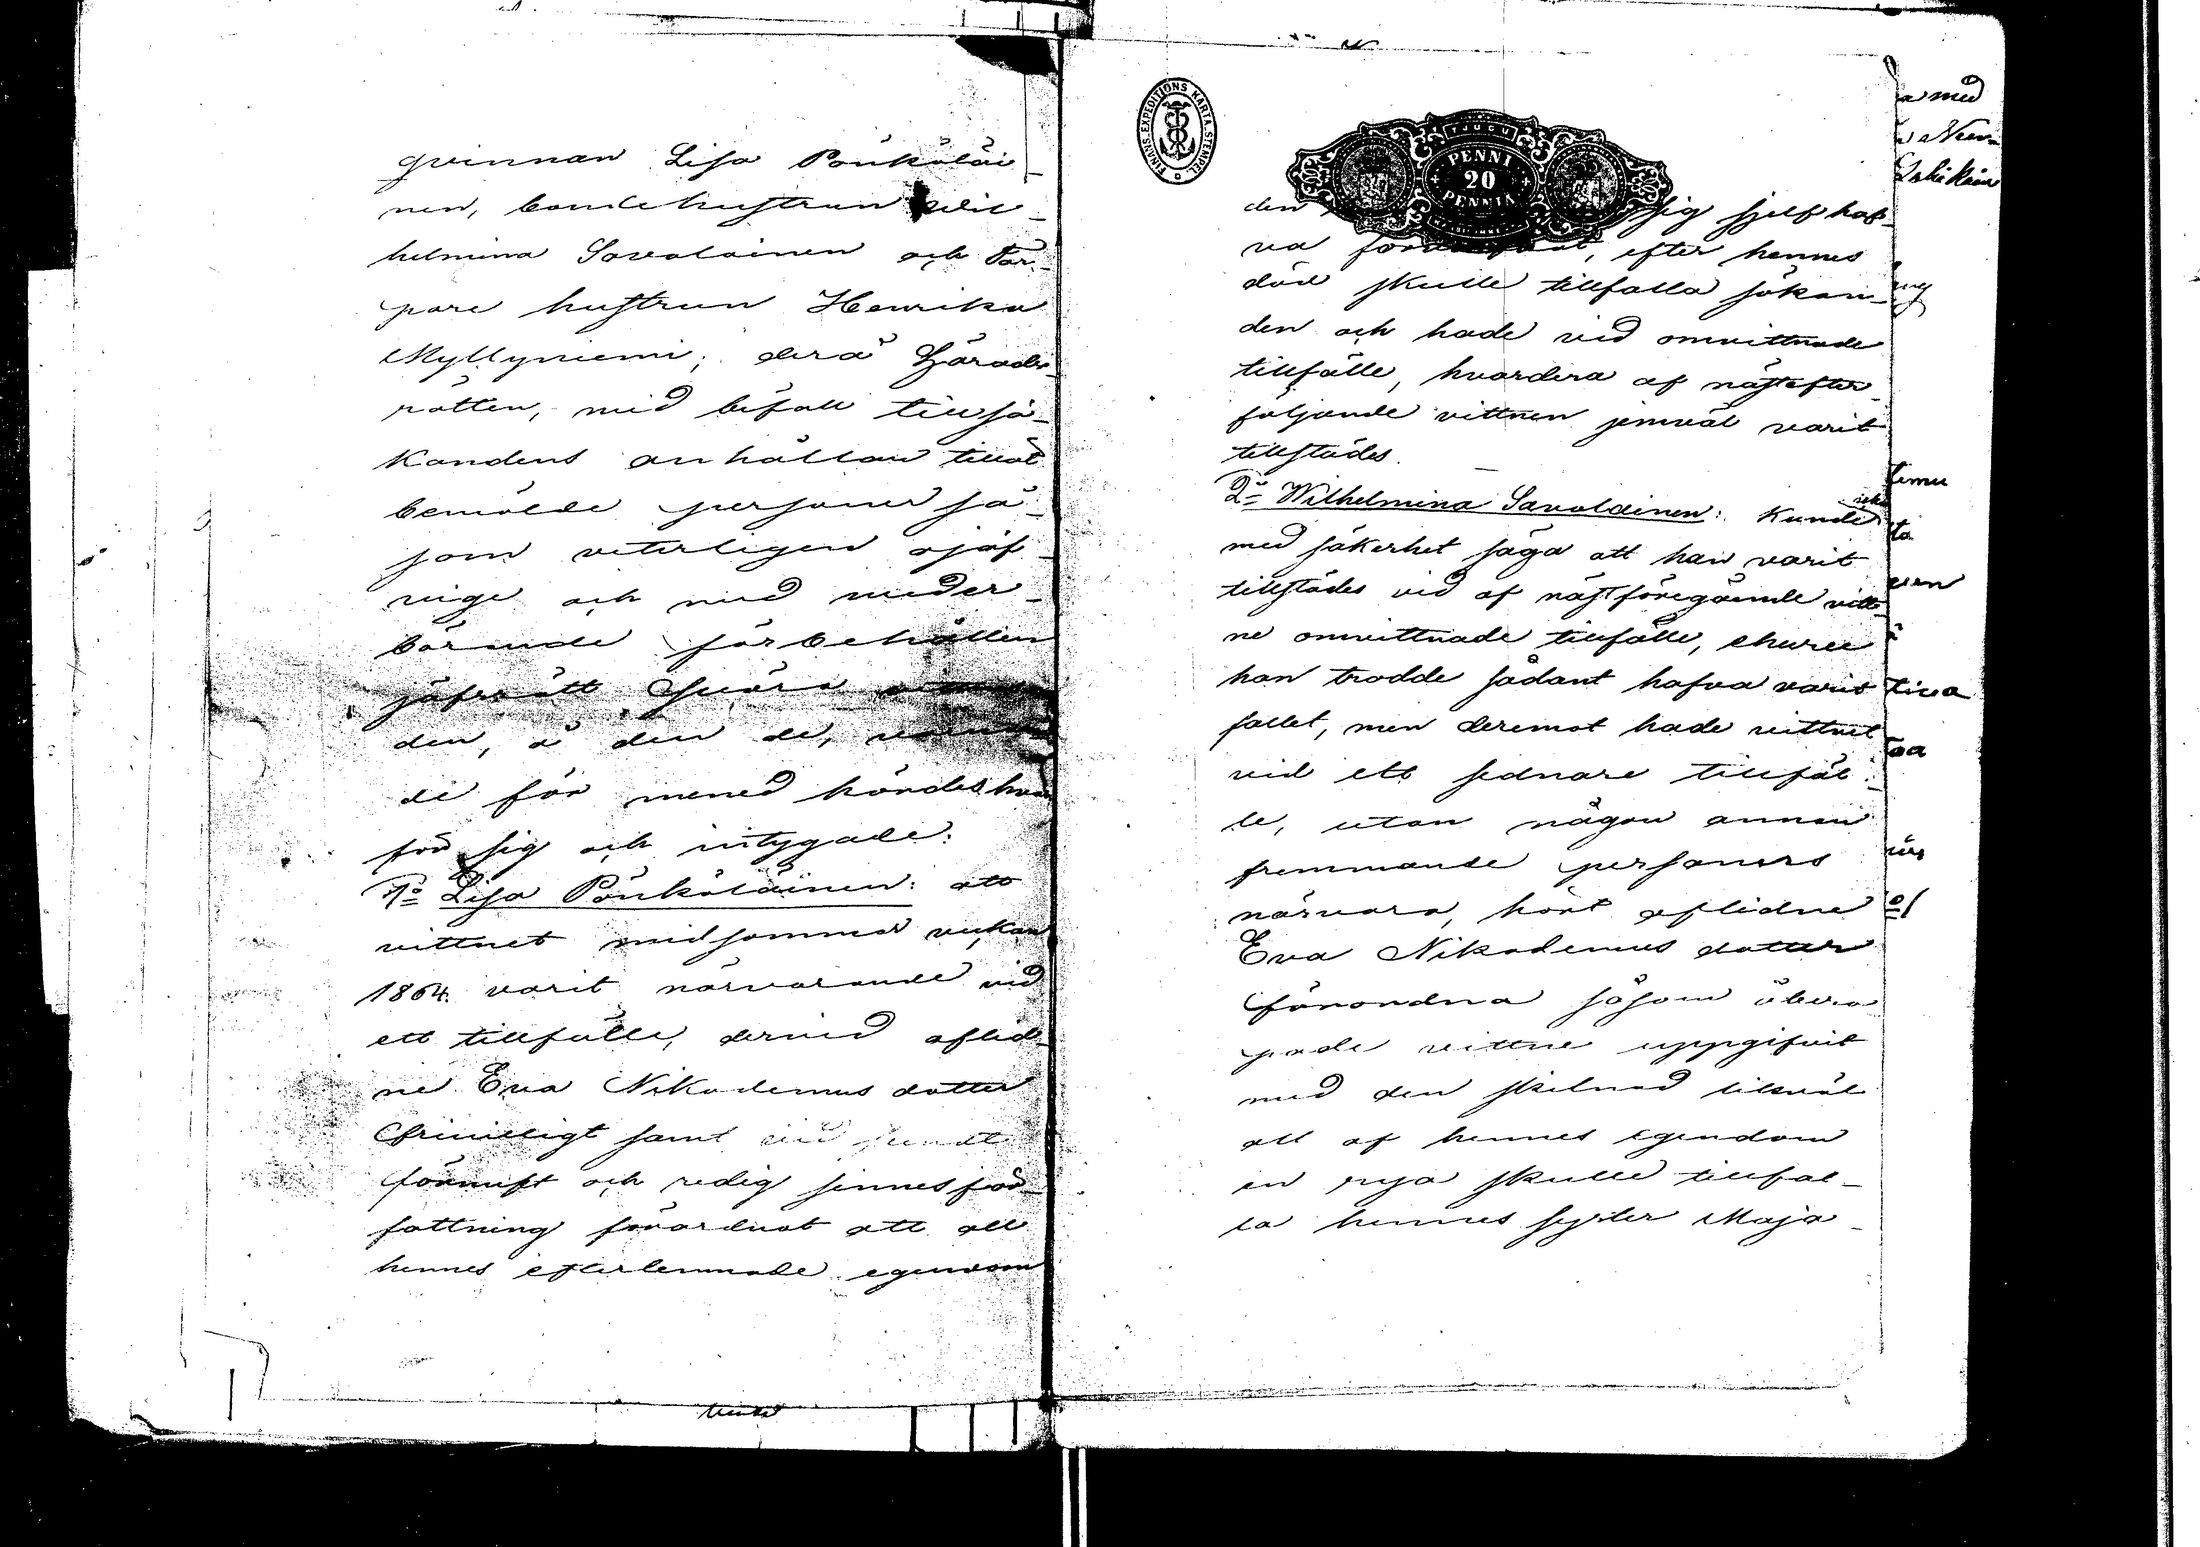 qvinnan Lisa Pönkäläi
nen, bondehustrun Wil-
helmina Savolainen och Tor-
pare hustrun Henrika
Myllyniemi; derå Härads-
rätten, med bifall till sö-
kandens anhållan tillät
bemälde personer så-
som veterligen ojäf-
viga och med veder-
börande förbehållen
jäfsrätt svära
den, å den de,
de för mened hördes hvar
för sig och intygade:
1o Lisa Pönkäläinen: att
vittnet midsommar veckan
1864 varit närvarande vid
ett tillfälle, dervid aflid-
ne Eva Nikodemus dotter
friwilligt samt vid sundt
förnuft och redig sinnesför-
fattning förordnat att all
hennes efterlemnade egendom
vittnet
FINANS EXPEDITIONS KARTA STEMPEL
TJUGU
PENNI
20
PENNIÄ
den sig sjelf haf-
va , efter hennes
död skulle tillfalla sökan-
den och hade vid omvittnade
tillfälle, hvardera af nästefter-
följande vittnen jemväl varit
tillstädes.
2o Wilhelmina Savolainen: kunde icke
med säkerhet säga att han varit
tillstädes vid af nästföregående vitt-
ne omvittnade tillfälle, ehuru
han trodde sådant hafva varit
fallet, men deremot hade vittnet
vid ett sednare tillfäl-
le, utan någon annan
fremmande persons
närvaro, hört aflidne
Eva Nikodemus dotter
förordna såsom åbero-
pade vittne uppgifvit
med den skilnad likväl
att af hennes egendom
en rya skulle tillfal-
la hennes syster Maja-